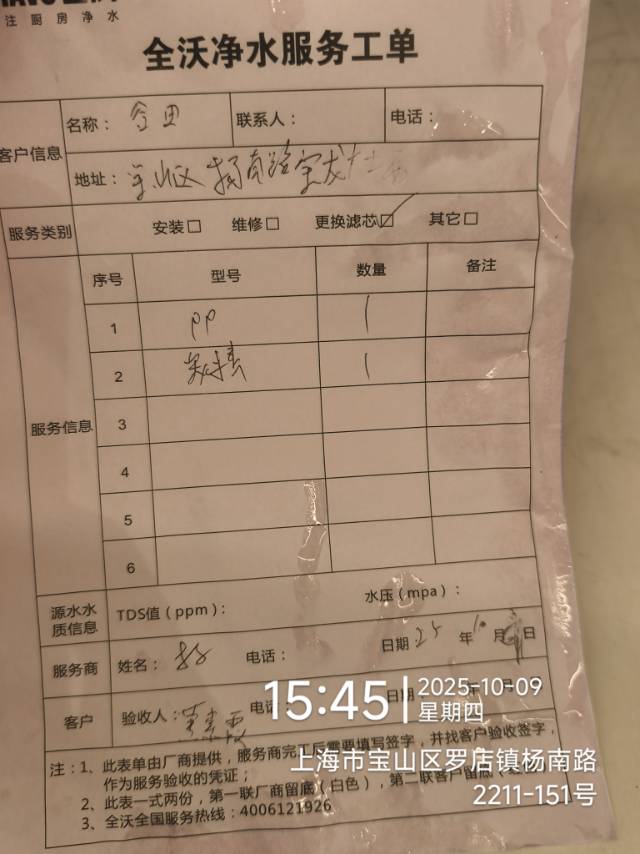 注厨房净水
全沃净水服务工单
客户信息
名称： 联系人： 电话：
地址：宝山区杨南路宝龙
服务类别 安装□ 维修□ 更换滤芯☑ 其它□
服务信息
序号 型号 数量 备注
1 PP 1
2 1
3
4
5
6
源水水质信息 TDS值（ppm）： 水压（mpa）：
服务商 姓名： 电话： 日期 25 年 10 月 日
客户 验收人： 电话： 日期
注：1、此表单由厂商提供，服务商完工后需要填写签字，并找客户验收签字，
作为服务验收的凭证；
2、此表一式两份，第一联厂商留底（白色），第二联客户留底
3、全沃全国服务热线：4006121926
15:45
2025-10-09
星期四
上海市宝山区罗店镇杨南路
2211-151号